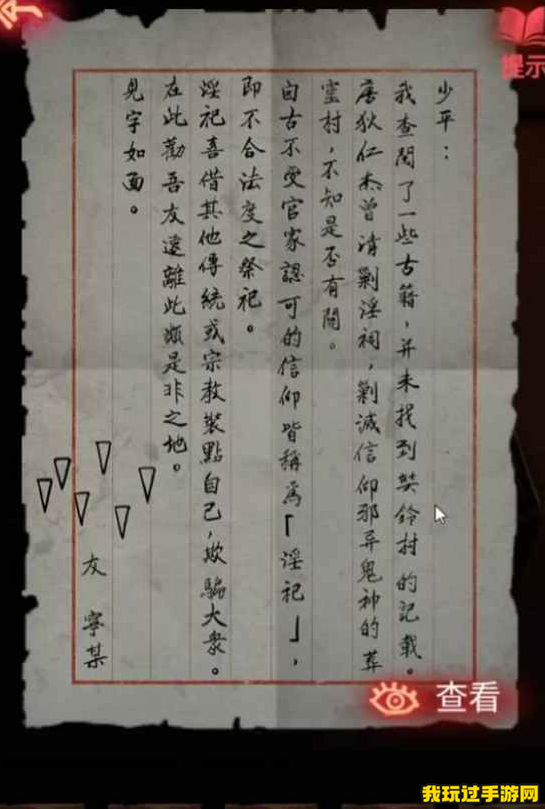 提示
少平：
我查閱了一些古籍，并未找到奘鈴村的記載。
唐狄仁杰曾清剿淫祠，剿滅信仰邪異鬼神的葬
窐村，不知是否有關。
自古不受官家認可的信仰皆稱爲「淫祀」，
即不合法度之祭祀。
淫祀喜借其他傳統或宗教裝點自己，欺騙大衆。
在此勸吾友遠離此類是非之地。
見字如面。
友 寧某
查看
我玩过手游网